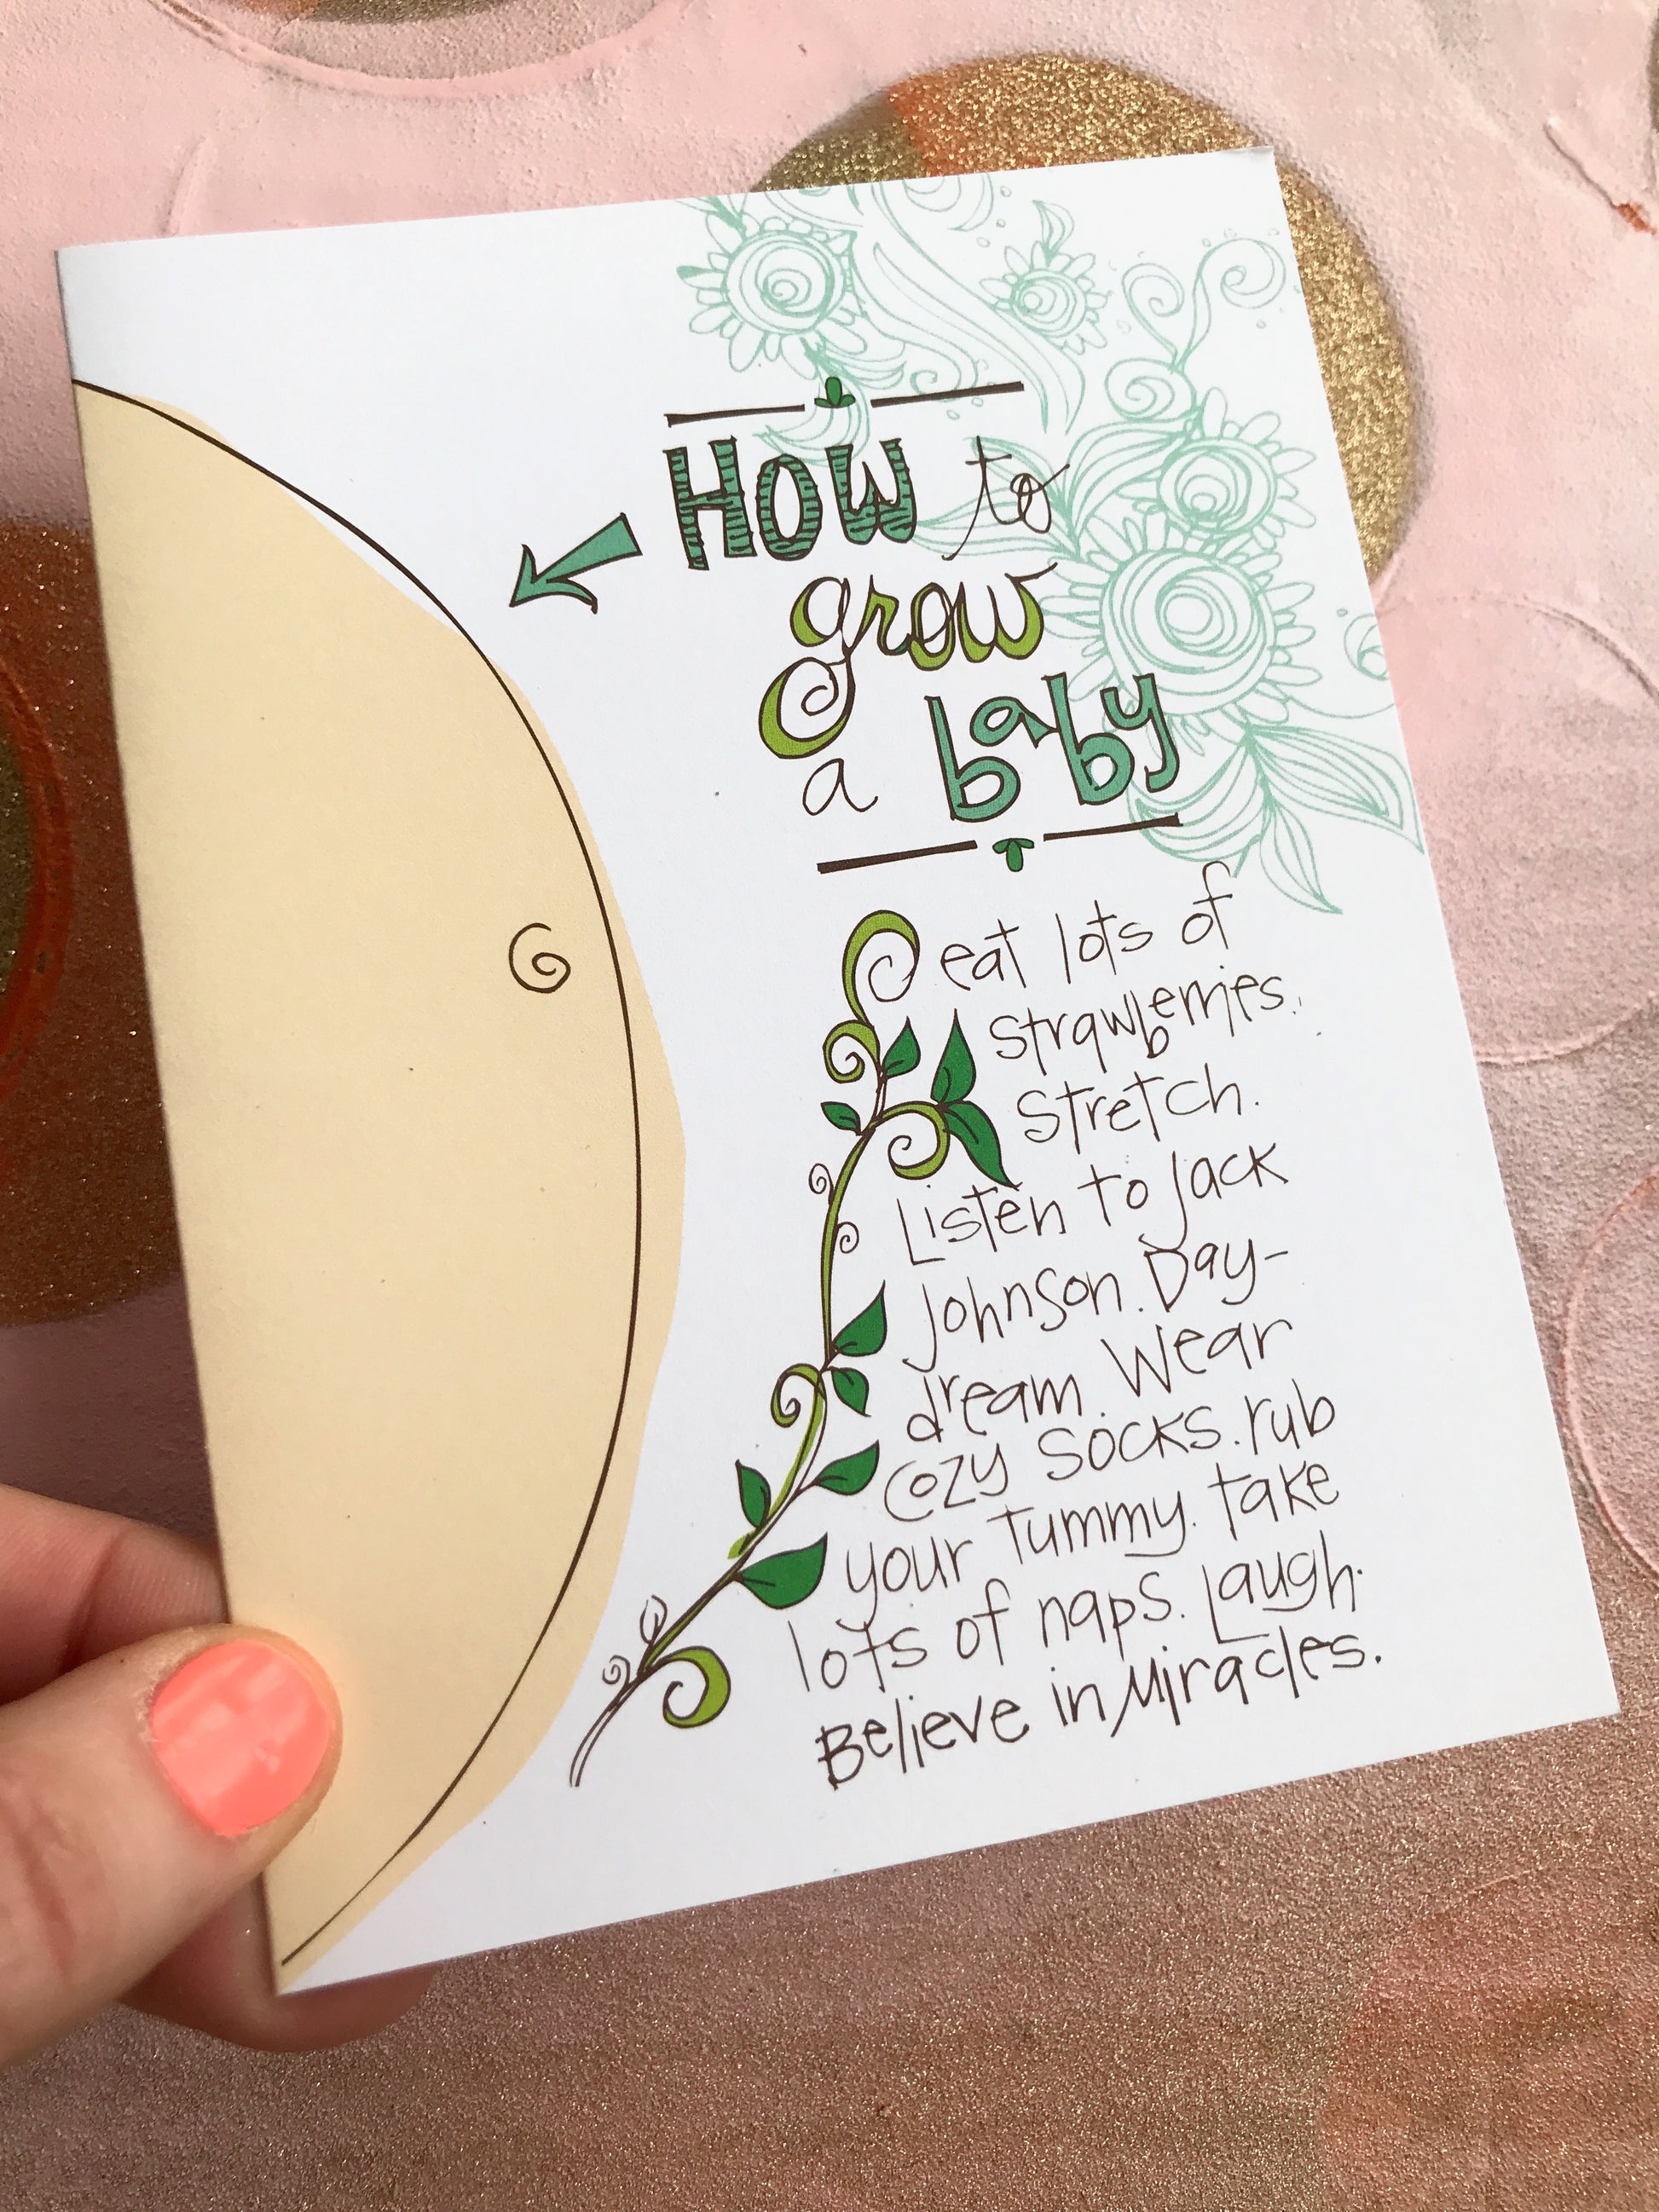 How to
grow
a baby
eat lots of
strawberries.
Stretch.
Listen to Jack
Johnson. Day-
dream. Wear
cozy socks. rub
your tummy. take
lots of naps. Laugh.
Believe in Miracles.